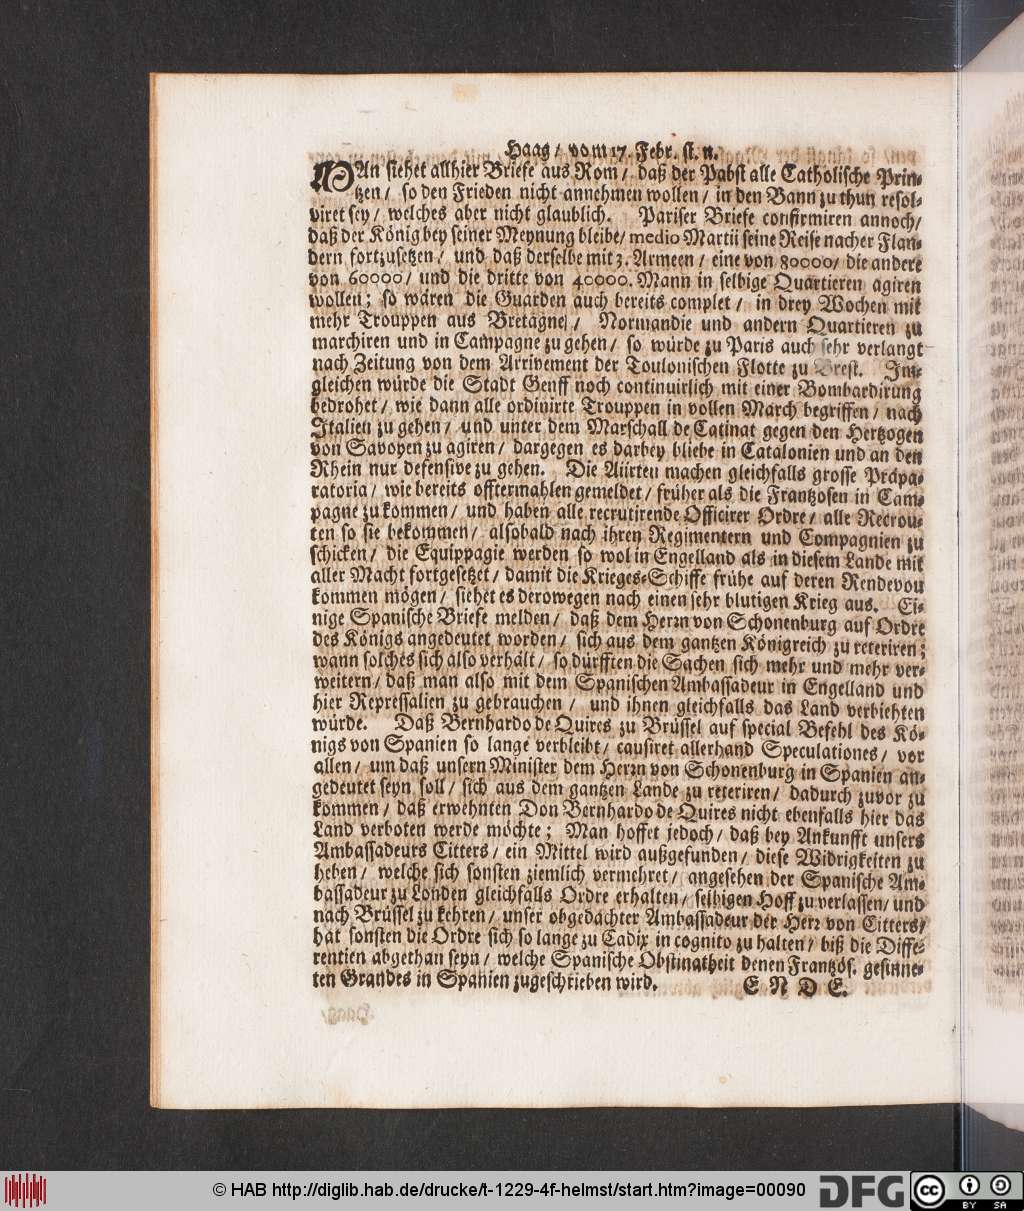 Haag / vom 17. Febr. st. n.
MAn siehet allhier Briefe aus Rom / daß der Pabst alle Catholische Prin-
tzen / so den Frieden nicht annehmen wollen / in den Bann zu thun resol-
viret sey / welches aber nicht glaublich. Pariser Briefe confirmiren annoch /
daß der König bey seiner Meynung bleibe / medio Martii seine Reise nacher Flan-
dern fortzusetzen / und daß derselbe mit 3. Armeen / eine von 80000 / die andere
von 60000 / und die dritte von 40000. Mann in selbige Quartieren agiren
wollen ; so wären die Guarden auch bereits complet / in drey Wochen mit
mehr Trouppen aus Bretagne / Normandie und andern Quartieren zu
marchiren und in Campagne zu gehen / so würde zu Paris auch sehr verlangt
nach Zeitung von dem Arrivement der Toulonischen Flotte zu Brest. Im-
gleichen würde die Stadt Genff noch continuirlich mit einer Bombardirung
bedrohet / wie dann alle ordinirte Trouppen in vollen March begriffen / nach
Italien zu gehen / und unter dem Marschall de Catinat gegen den Hertzogen
von Savoyen zu agiren / dargegen es darbey bliebe in Catalonien und an den
Rhein nur defensive zu gehen. Die Aliirten machen gleichfalls grosse Präpa-
ratoria / wie bereits offtermahlen gemeldet / früher als die Frantzosen in Cam-
pagne zu kommen / und haben alle recrutirende Officirer Ordre / alle Recrou-
ten so sie bekommen / alsobald nach ihren Regimentern und Compagnien zu
schicken / die Equippagie werden so wol in Engelland als in diesem Lande mit
aller Macht fortgesetzet / damit die Krieges-Schiffe frühe auf deren Rendevou
kommen mögen / siehet es derowegen nach einen sehr blutigen Krieg aus. Ei-
nige Spanische Briefe melden / daß dem Herrn von Schonenburg auf Ordre
des Königs angedeutet worden / sich aus dem gantzen Königreich zu reteriren ;
wann solches sich also verhält / so dürfften die Sachen sich mehr und mehr ver-
weitern / daß man also mit dem Spanischen Ambassadeur in Engelland und
hier Repressalien zu gebrauchen / und ihnen gleichfalls das Land verbiehten
würde. Daß Bernhardo de Quires zu Brüssel auf special Befehl des Kö-
nigs von Spanien so lange verbleibt / causiret allerhand Speculationes / vor
allen / um daß unsern Minister dem Herrn von Schonenburg in Spanien an-
gedeutet seyn soll / sich aus dem gantzen Lande zu reteriren / dadurch zuvor zu
kommen / daß erwehnten Don Bernhardo de Quires nicht ebenfalls hier das
Land verboten werde möchte ; Man hoffet jedoch / daß bey Ankunfft unsers
Ambassadeurs Citters / ein Mittel wird außgefunden / diese Widrigkeiten zu
heben / welche sich sonsten ziemlich vermehret / angesehen der Spanische Am-
bassadeur zu Londen gleichfalls Ordre erhalten / selbigen Hoff zu verlassen / und
nach Brüssel zu kehren / unser obgedachter Ambassadeur der Herr von Citters /
hat sonsten die Ordre sich so lange zu Cadix in cognito zu halten / biß die Diffe-
rentien abgethan seyn / welche Spanische Obstinatheit denen Frantzös. gesinne-
ten Grandes in Spanien zugeschrieben wird. E N D E.
© HAB http://diglib.hab.de/drucke/t-1229-4f-helmst/start.htm?image=00090
DFG
cc
BY SA